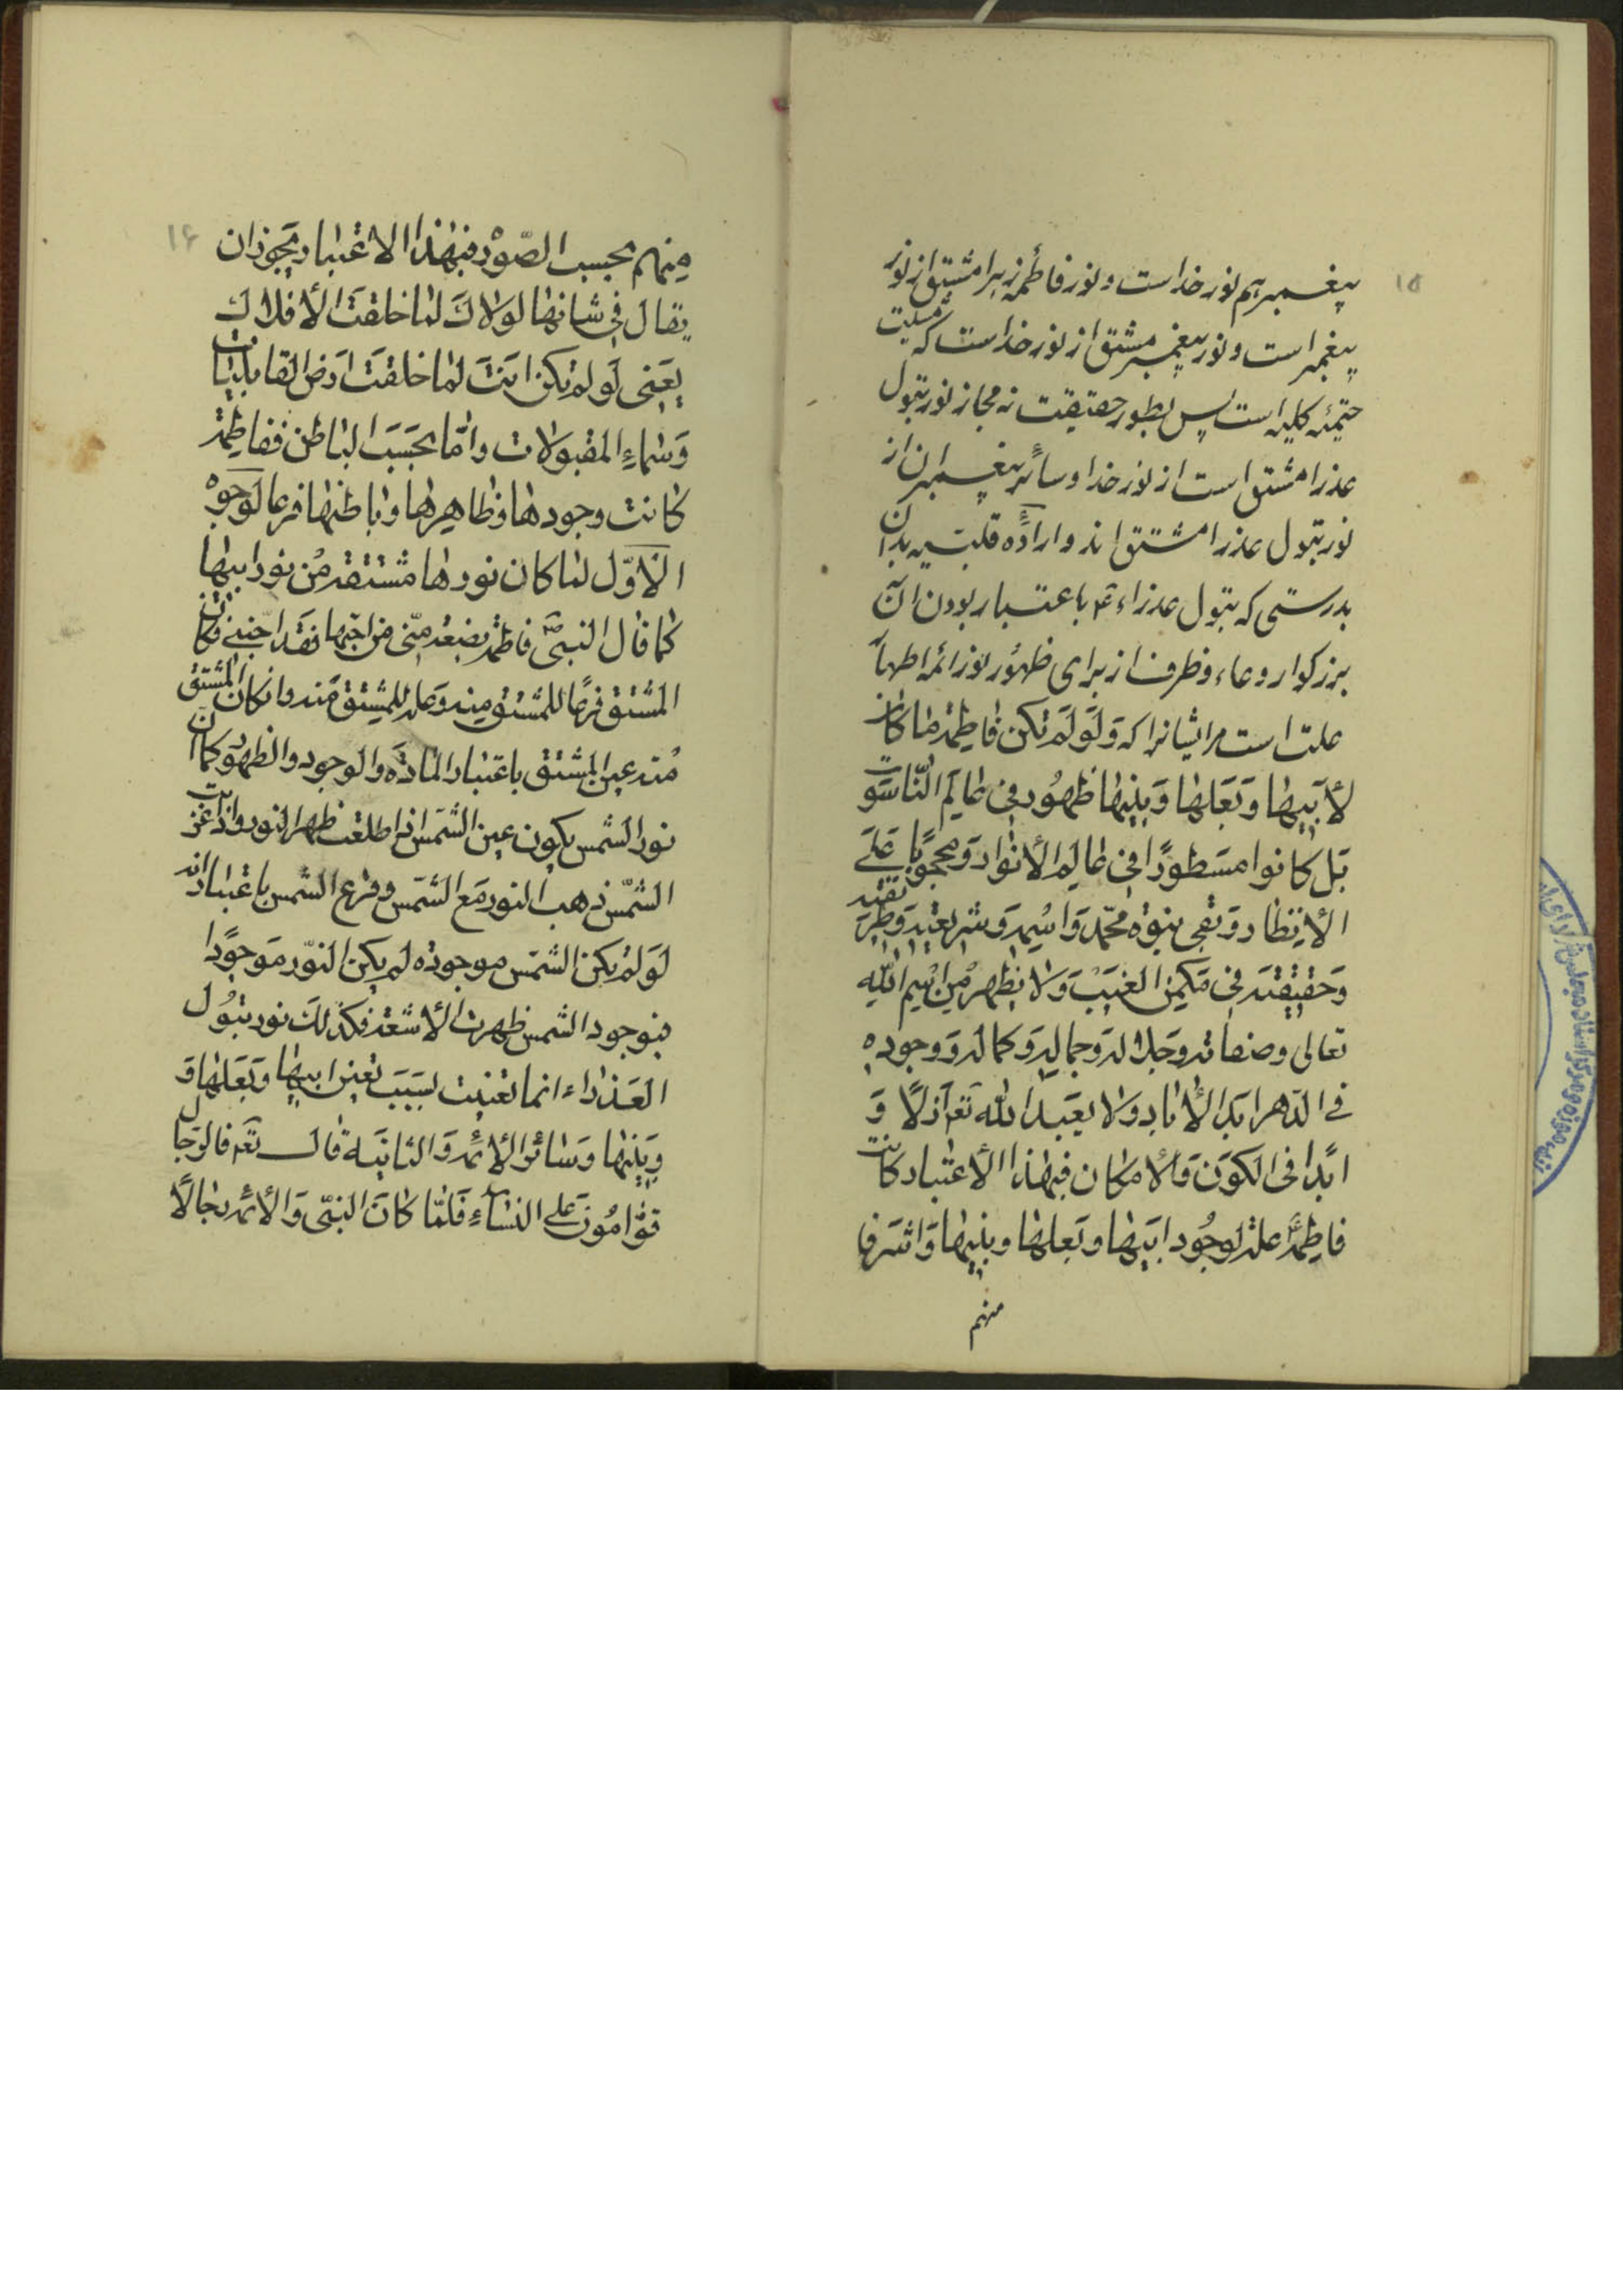 ۱۵
پیغمبر هم نور خداست و نور فاطمه زهرا مشتق از نور
پیغمبر است و نور پیغمبر مشتق از نور خداست که مشیت
حتمیّه کلیه است پس بطور حقیقت نه مجاز نور بتول
عذرا مشتق است از نور خدا و سائر پیغمبران از
نور بتول عذرا مشتق اند و اراده قلبیه بدان
بدرستی که بتول عذراء ع باعتبار بودن آن
بزرکوار وعاء و ظرف از برای ظهور نور ائمه اطهار
علت است مر ایشانرا که وَلَو لَم تکن فاطِمة ما کان
لأبَیِها وَبَعلِها وَبَنیِها ظهُور فی عالَمِ النّاسُوت
بَل کانوا مسَطورًا فی عالم الأنوار وَمحجوبًا عَلَی
الأنظار وَبَقی نبوة محمّد وَاسمِه وَشریعَتِه وَطریقته
وَحَقیقته فی مَکمنِ الغیَب وَلا یظهر مِن اسمِ اللهِ
تعالی وصفاته وجَلاله وجماله وَکماله وَوجوده
فی الدّهر ابَد الأباد ولا یعبَد الله تعَ آزلًا وَ
ابدًا فی الکوَن وَالأمکان فبهذا الأعتبار کانت
فاطِمَة علة لوجُود ابَیها وبَعلها وبنیها وَاشرَف
منهم
۱۶
مِنهم بحسب الصّوَر فبهذا الاعتبار یجَوز ان
یقال فی شانها لولاکَ لما خلقتَ الأفلاک
یعَنی لَو لم تکن انتَ لما خلقتَ ارَض القابلیات
وَسَماء المقبولات وامّا بحَسَب الباطن ففاطِمة
کانت وجودها وظاهرها وباطنها فرعا لوجوه
الأوّل لما کان نورها مشتقة مُن نور ابیها
کما قال النبی ص فاطمة بضعة مِنّی من احبّها فقد احَبّنی فکان
المشتق فرعًا للمشتق مِنه وَعلة للمشتق مَنه وان کان المشتق
مُنه عین المشتق باعتبار المادّة والوجود والظهور کما ان
نور الشمس یکون عین الشمَس اذا طلعت ظهر النور واذا غربت
الشّمس ذهب النور مَع الشمَس وفرع الشمس باعتبار انه
لَو لم یکن الشمَس موجوده لم یکن النّور مَوجودا
فبوجود الشمس ظهرت الأشعة فکذلک نور بتول
العَذراء انما تعینت بسَبَب تعین ابیها وبَعَلها وَ
وَبَنیها وَسائر الأئمة وَالثانیَة قال تعَ فالرّجال
قوّامُون عَلَی النساءِ فَلمّا کانَ النبی وَالأئمة رجالًا